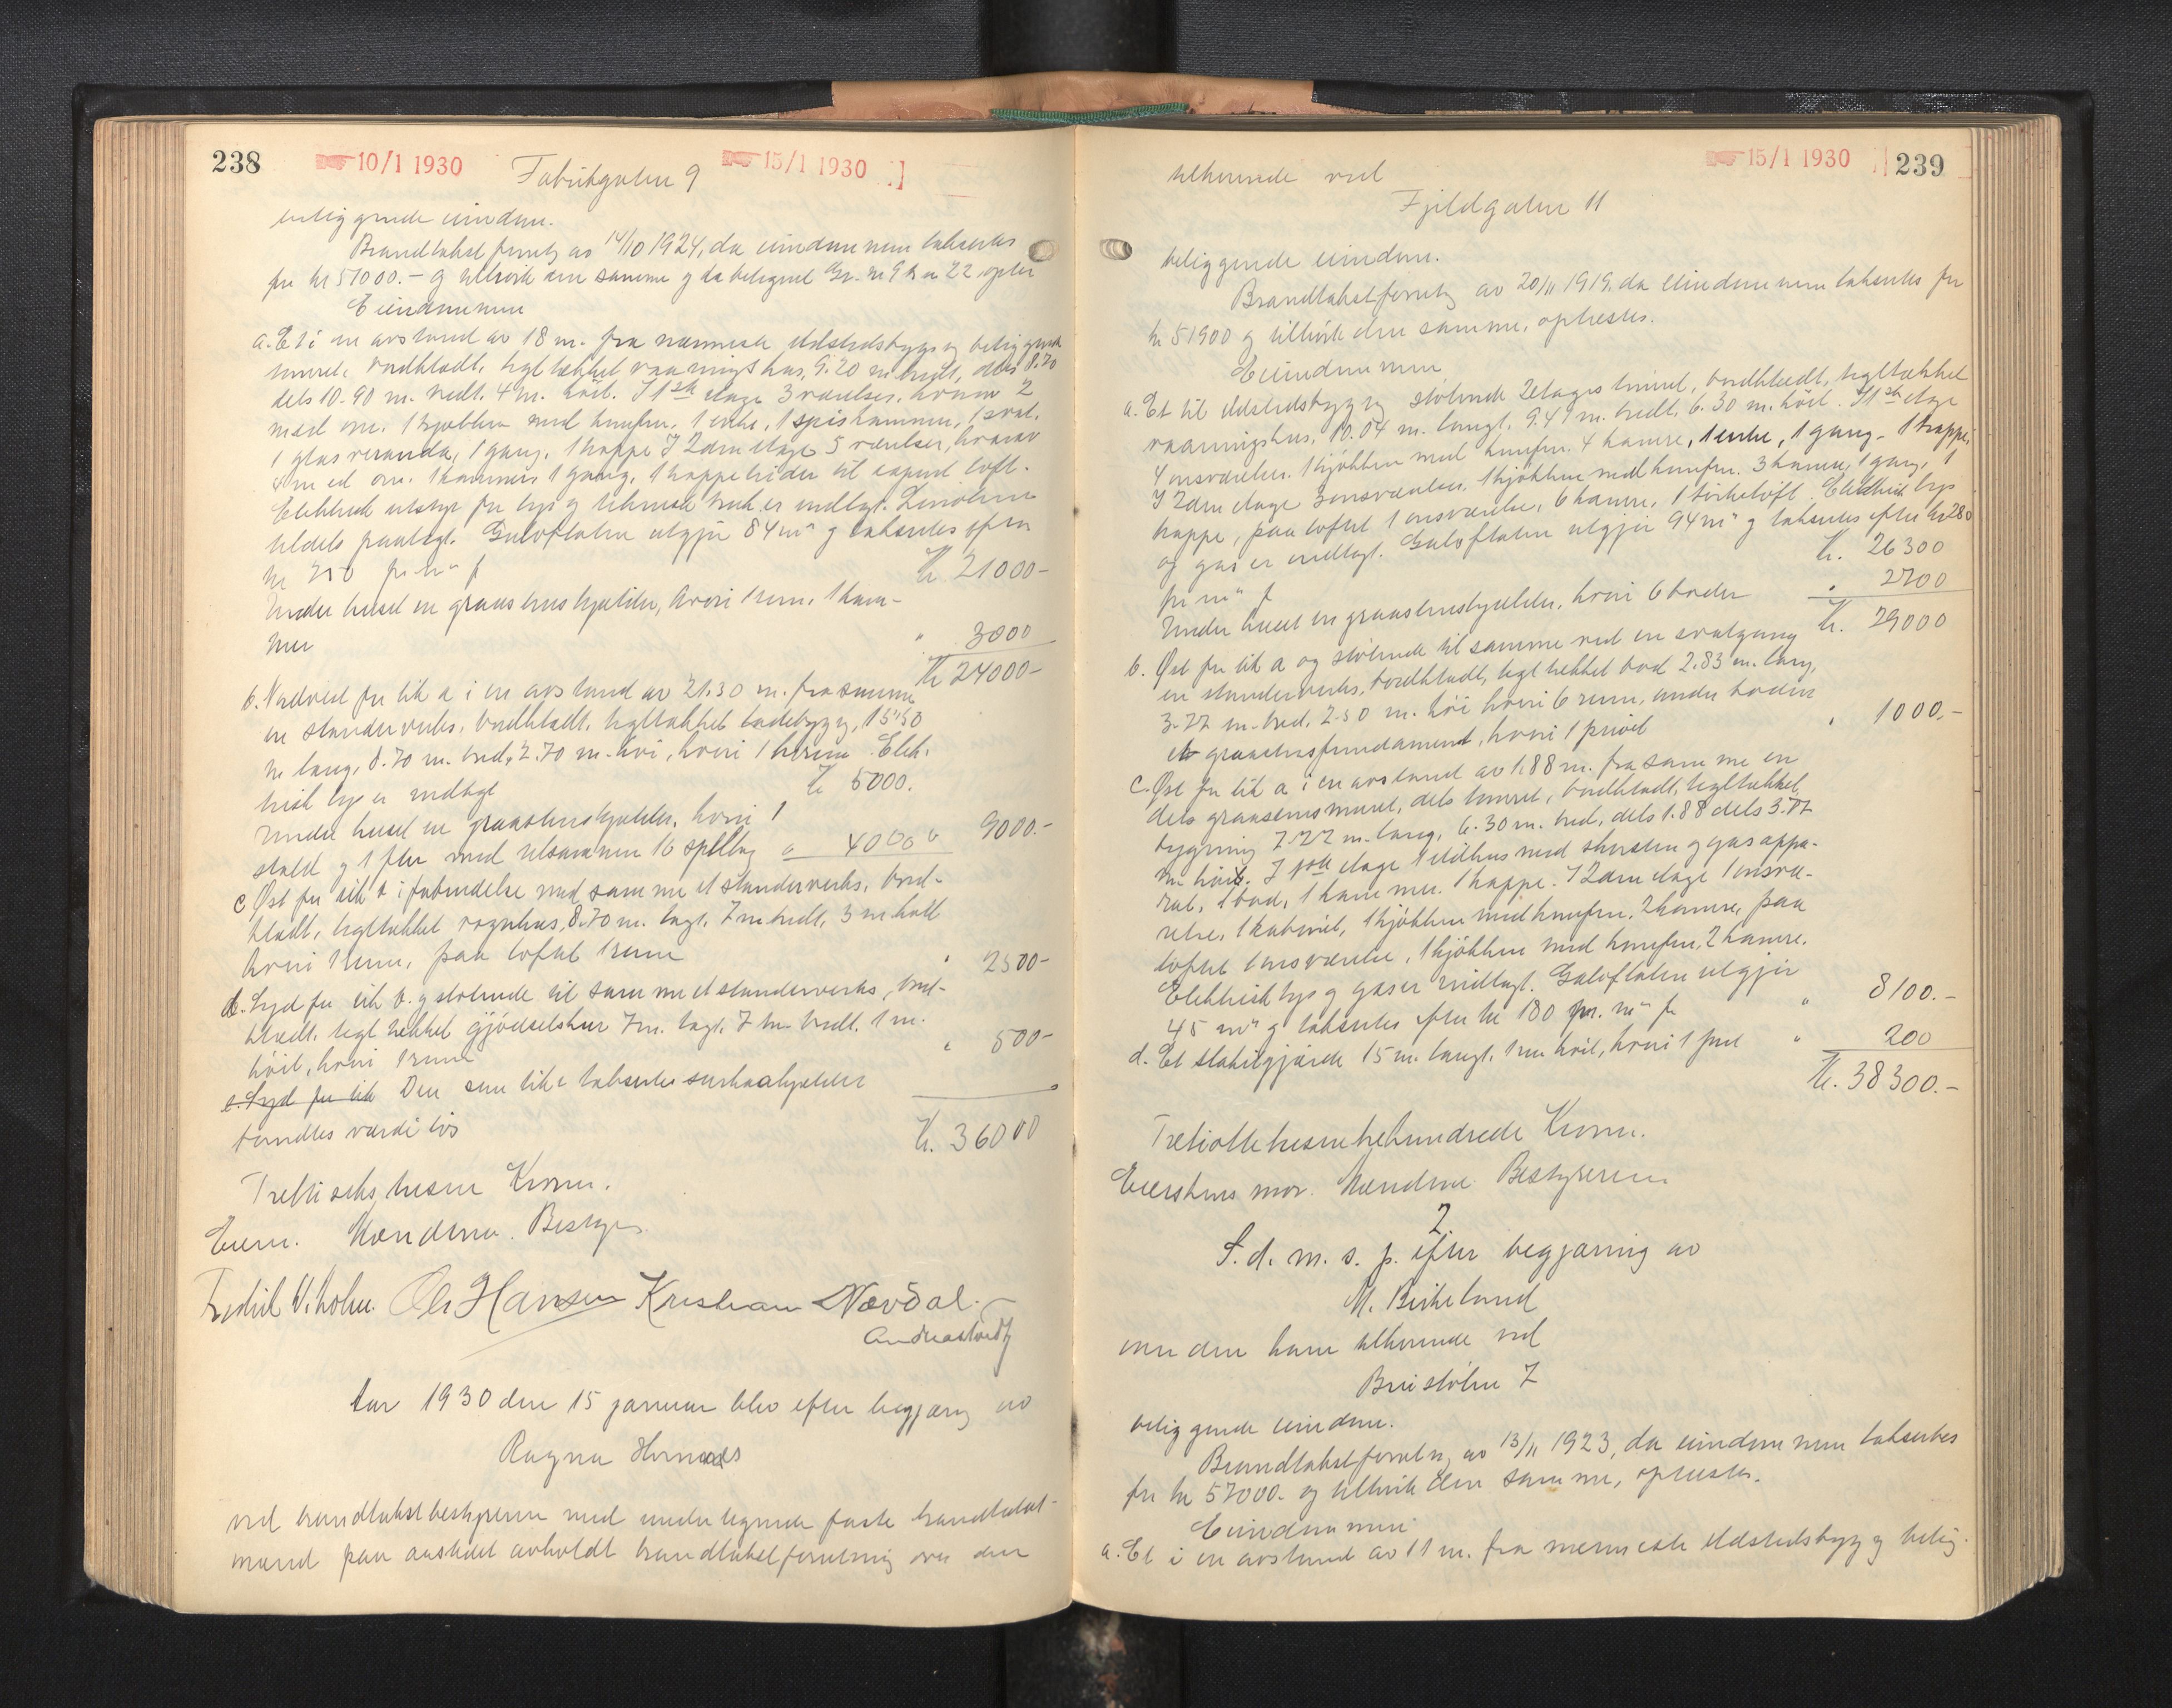 238
10/1 1930
Fabrikgaten 9
15/1 1930
beliggende eiendom.
Brandtakstforretn av 14/10 1924, da eiendommen takseredes
for kr 51000.- og tilhørte den samme og da betegnet Gr. nr 9 br nr 22 opl.
Eiendommen
a. Et i en avstand av 18 m. fra nærmeste ildstedsbygn beliggende
tømret, bordklædt, tegltækket vaaningshus, 9.20 m bredt, dels 8.70
dels 10.90 m. bredt. 4 m. høit. I 1ste etage 3 værelser, hvorav 2
med ovn. 1 kjøkken med komfur. 1 entre, 1 spiskammer, 1 sval.
1 glasveranda, 1 gang. 1 trappe I 2den etage 5 værelser, hvorav
4 med ovn. 1 kammer 1 gang. 1 trappe til loft.
Elektrisk utstyr for lys og teknisk bruk er indlagt. Linoleum
tildels paalagt. Gulvflaten utgjør 84 m² og takseres efter
kr 250 pr m² f
Kr. 21000-
Under huset en graastenskjelder, hvori 1 rum. 1 kam-
mer
" 3000
Kr 24000-
b. Nordvest for lit a i en avstand av 21.30 m. fra samme
en standerverks, bordklædt, tegltækket ladebygn, 15.50
m lang, 8.70 m. bred, 2.70 m. høi, hvori 1 . Elek-
trisk lys er indlagt
Kr 5000.
Under huset en graastenskjelder, hvori 1
stald og 1 flor med tilsammen 16 spiltaug
" 4000 "
9000.-
c. Øst for lit b i forbindelse med samme et standerverks, bord-
klædt, tegltækket vognhus, 8.70 m. langt. 7 m bredt, 3 m høit
hvori 1 rum, paa loftet 1 rum
" 2500-
d. Syd for lit b. og støtende til samme et standerverks, bord-
klædt, tegltækket gjødselshus 7 m. langt. 7 m bredt. 1 m.
høit, hvori 1 rum
" 500-
e. Syd for lit Den som lit e takserte surhaakjelder
fandtes værdiløs
Kr. 36000
Trettiseks tusen Kroner.
Eieren. Mændene. Bestyr.
Fredrik W. Holm. Ole Hansen Kristian Nævdal.
Andreas
Aar 1930 den 15 januar blev efter begjæring av
Ragna
ved brandtakstbestyreren med undertegnede faste brandtakst-
mænd paa aastedet avholdt brandtakstforretning over den
15/1 1930
239
tilhørende ved
Fjeldgaten 11
beliggende eiendom.
Brandtakstforretn av 20/11 1919. da eiendommen takseredes for
kr 51900 og tilhørte den samme, oplæstes.
Eiendommen
a. Et til ildstedsbygn støtende 2etages tømret, bordklædt, tegltækket
vaaningshus, 10.04 m. langt. 9.41 m. bredt. 6.30 m. høit. I 1ste etage
4 ovnsværelser. 1 kjøkken med komfur. 4 kamre, 1 entre, 1 gang. 1 trappe.
I 2den etage 3 ovnsværelser. 1 kjøkken med komfur. 3 kamre, 1 gang. 1
trappe, paa loftet 1 ovnsværelse, 6 kamre, 1 tørkeloft. Elektrisk lys
og gas er indlagt. Gulvflaten utgjør 94 m² og takseres efter kr 280
pr m² f
Kr. 26300
Under huset en graastenskjelder, hvori 6 boder
" 2700
Kr. 29000
b. Øst for lit a og støtende til samme ved en svalgang
en standerverks, bordklædt, tegltækket bod 2.83 m. lang,
3.77 m. bred, 2.50 m. høi hvori 6 rum, under boden
et graastensfundament, hvori 1 privet
" 1000.-
c. Øst for lit a i en avstand av 1.88 m. fra samme en
dels graastensmuret, dels tømret, bordklædt, tegltækket
bygning 7.22 m. lang, 6.30 m. bred, dels 1.88 dels 3.77
m høi. I 1ste etage 1 ildhus med skorsten og gasappa-
rat, 1 bod, 1 kammer. 1 trappe. I 2den etage 1 ovnsvæ-
relse, 1 kabinet, 1 kjøkken med komfur, 2 kamre, paa
loftet 1 ovnsværelse, 1 kjøkken med komfur, 2 kamre.
Elektrisk lys og gas er indlagt. Gulvflaten utgjør
45 m² og takseres efter kr 180 pr. m² f
" 8100.-
d. Et stakitgjærde 15 m. langt. 1 m høit, hvori 1 port
" 200
Kr. 38300.-
Trettiotte tusen trehundrede Kroner.
Eierskens mor. Mændene Bestyreren
2.
S. d. m. s. p. efter begjæring av
M. Birkeland
over den ham tilhørende ved
Breistølen 7
beliggende eiendom.
Brandtakstforretn av 13/11 1923, da eiendommen takseredes
for kr 57000.- og tilhørte den samme, oplæstes.
Eiendommen
a. Et i en avstand av 11 m. fra nærmeste ildstedsbygn belig-